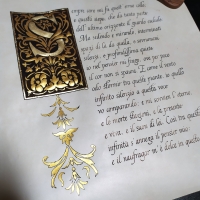 S
empre caro mi fu quest'ermo colle
e questa siepe, che da tanta parte
dell'ultimo orizzonte il guardo esclude
Ma sedendo e mirando, interminati
spazi di là da quella, e sovrumani
silenzi, e profondissima quiete
io nel pensier mi fingo, ove per poco
il cor non si spaura. E come il vento
odo stormir tra queste piante, io quello
infinito silenzio a questa voce
vo comparando: e mi sovvien l'eterno,
e le morte stagioni, e la presente
e viva, e il suon di lei. Così tra questa
infinità s'annega il pensier mio:
e il naufragar m'è dolce in questo